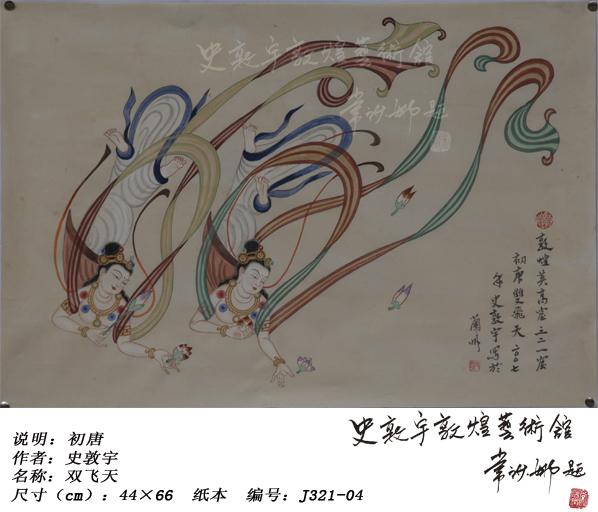 史敦宇敦煌艺術館
常沙娜题
敦煌莫高窟三二一窟
初唐雙飛天 二〇〇七
年 史敦宇寫於
蘭州
说明：初唐
作者：史敦宇
名称：双飞天
尺寸（cm）：44×66 纸本 编号：J321-04
史敦宇敦煌艺術館
常沙娜题